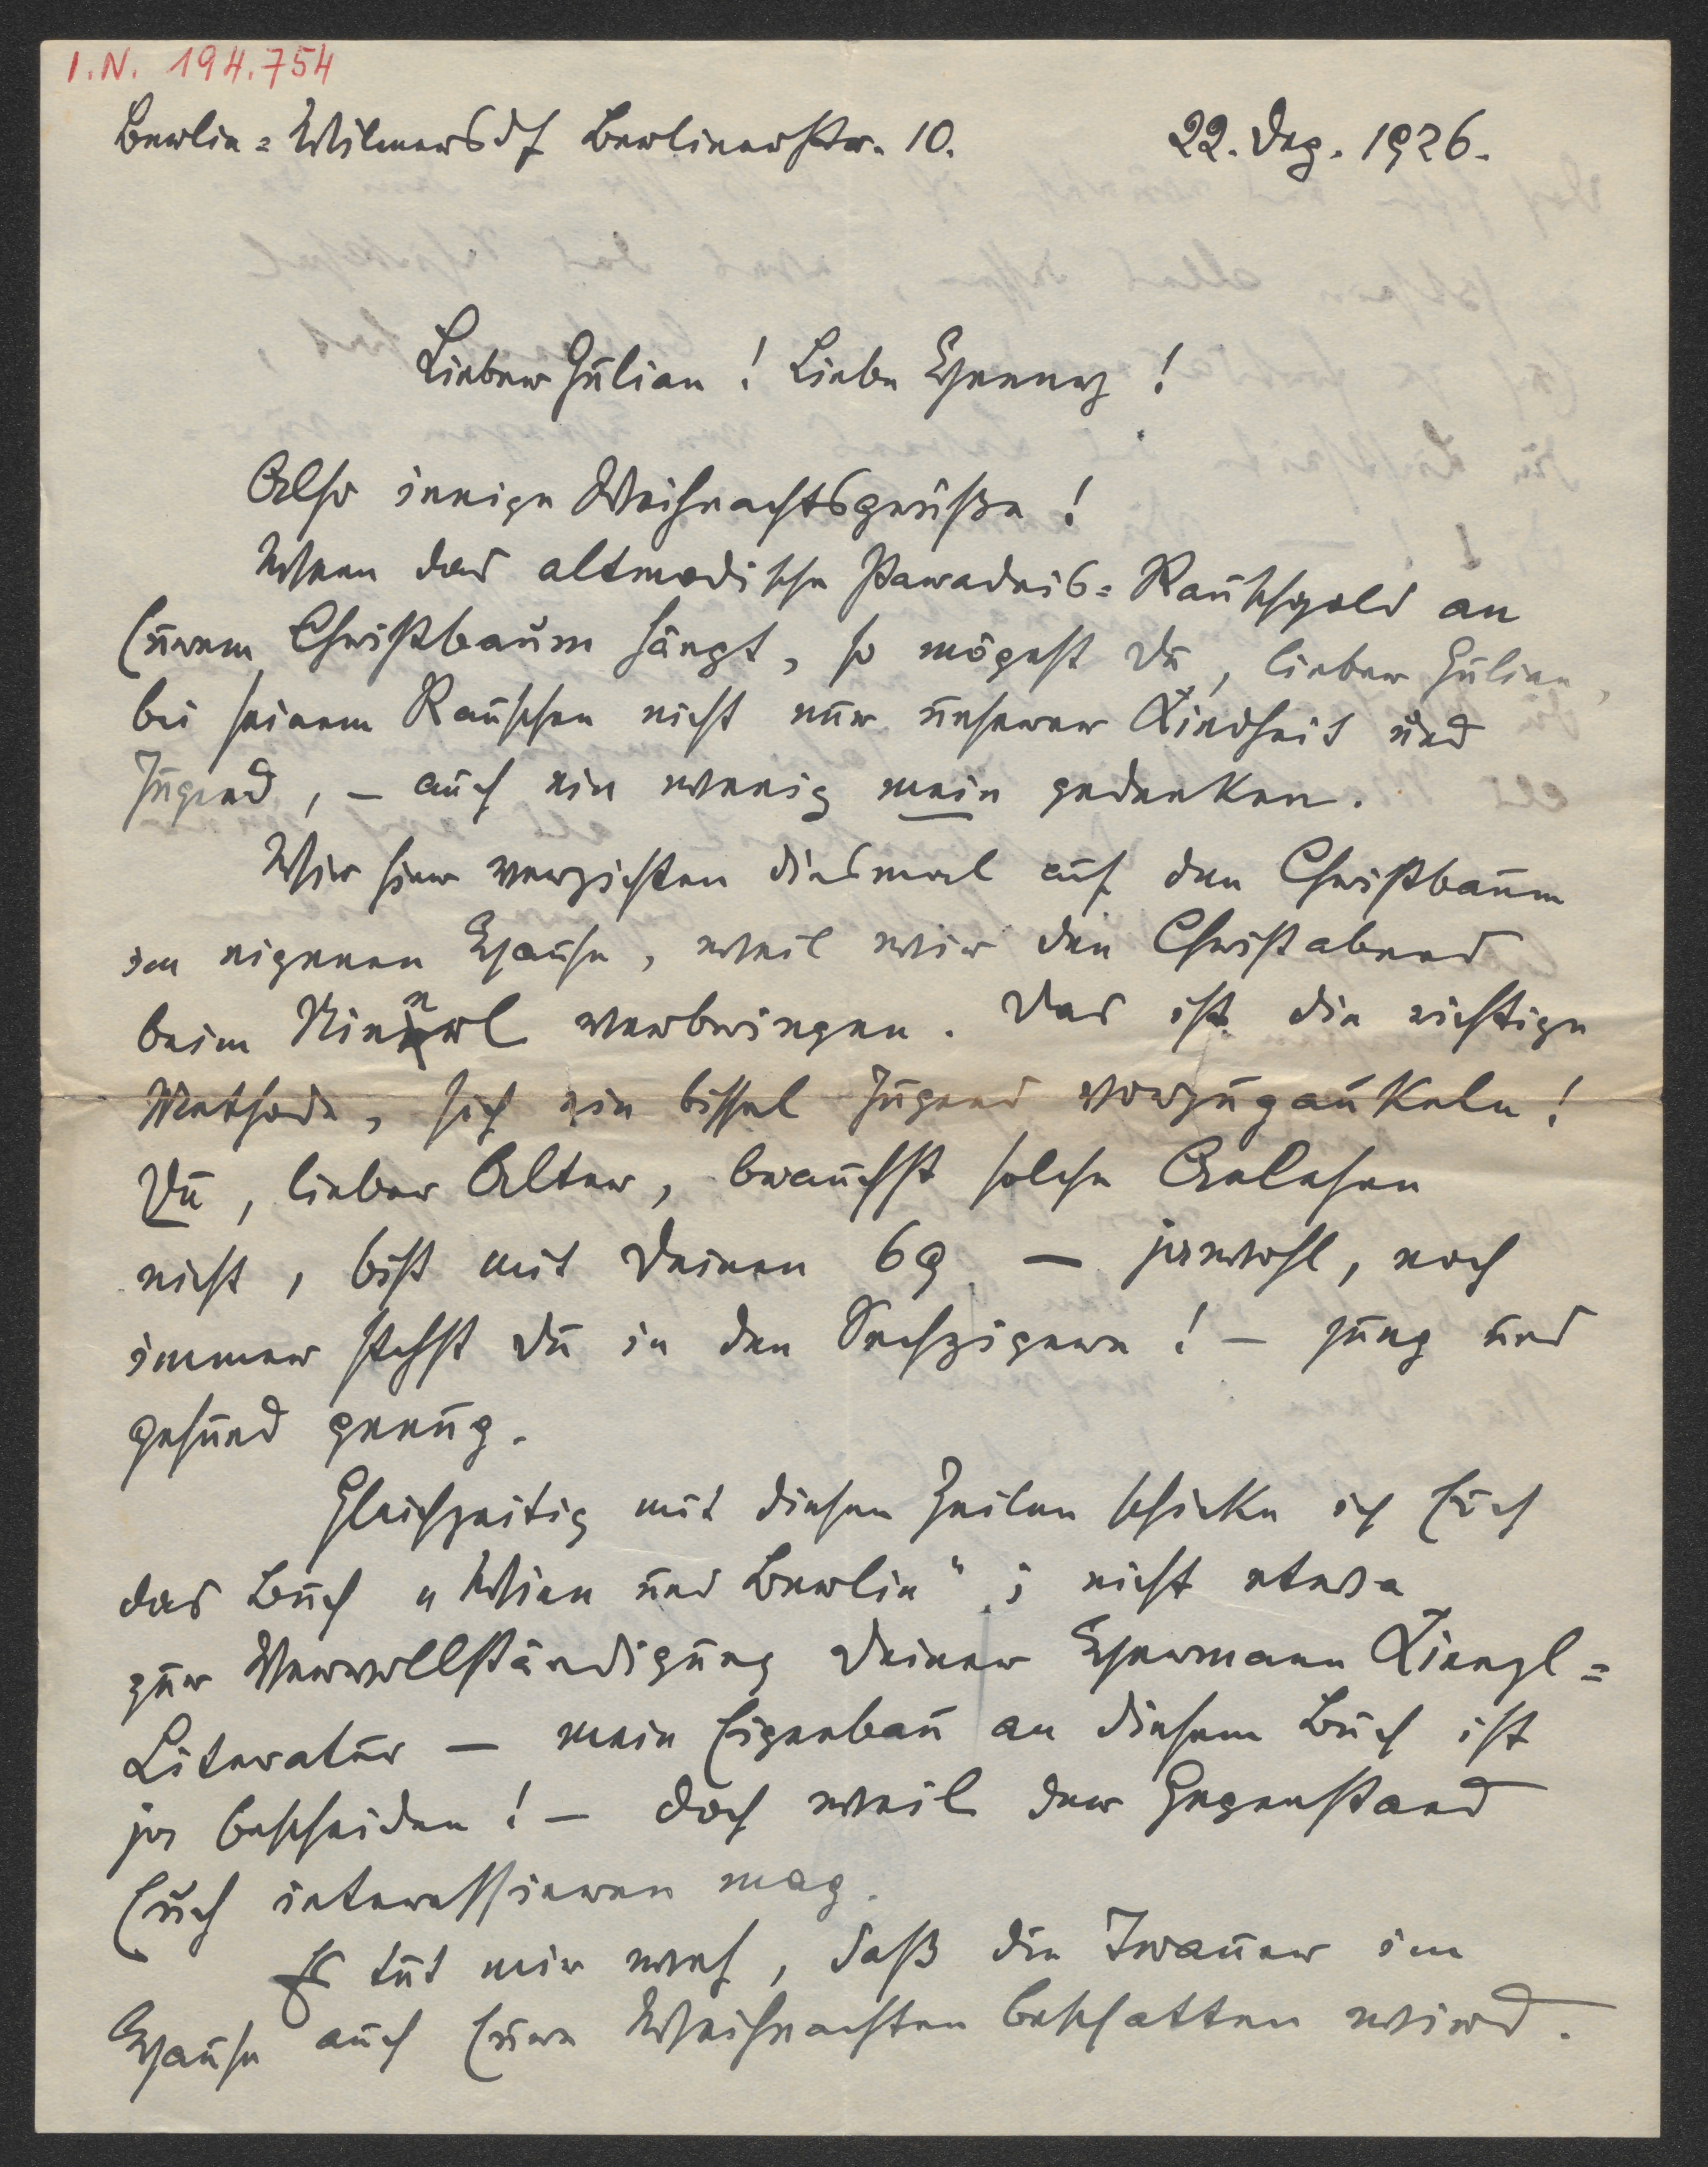 I.N. 194.754
Berlin-Wilmersdf Berlinerstr. 10. 22. Dez. 1926.
Lieber Julian! Liebe Henny!
Also innige Weihnachtsgrüße!
Wenn das altmodische Paradeis-Rauschgold an
Eurem Christbaum hängt, so mögest Du, lieber Julian,
bei seinem Rauschen nicht nur unserer Kindheit und
Jugend, – auch ein wenig mein gedenken.
Wir hier verzichten diesmal auf den Christbaum
im eigenen Hause, weil wir den Christabend
beim verbringen. Das ist die richtige
Methode, sich ein bissel Jugend vorzugaukeln!
Du, lieber Alter, brauchst solche
nicht, bist mit Deinen 69 – jawohl, noch
immer stehst Du in den Sechzigern! – jung und
gesund genug.
Gleichzeitig mit diesen Zeilen schicke ich Euch
das Buch „Wien und Berlin“; nicht etwa
zur Vervollständigung Deiner Hermann Kienzl-
Literatur – mein Eigenbau an diesem Buch ist
ja bescheiden! – doch weil der Gegenstand
Euch interessieren mag.
Es tut mir weh, daß die Trauer im
Hause auch Eure Weihnachten beschatten wird.